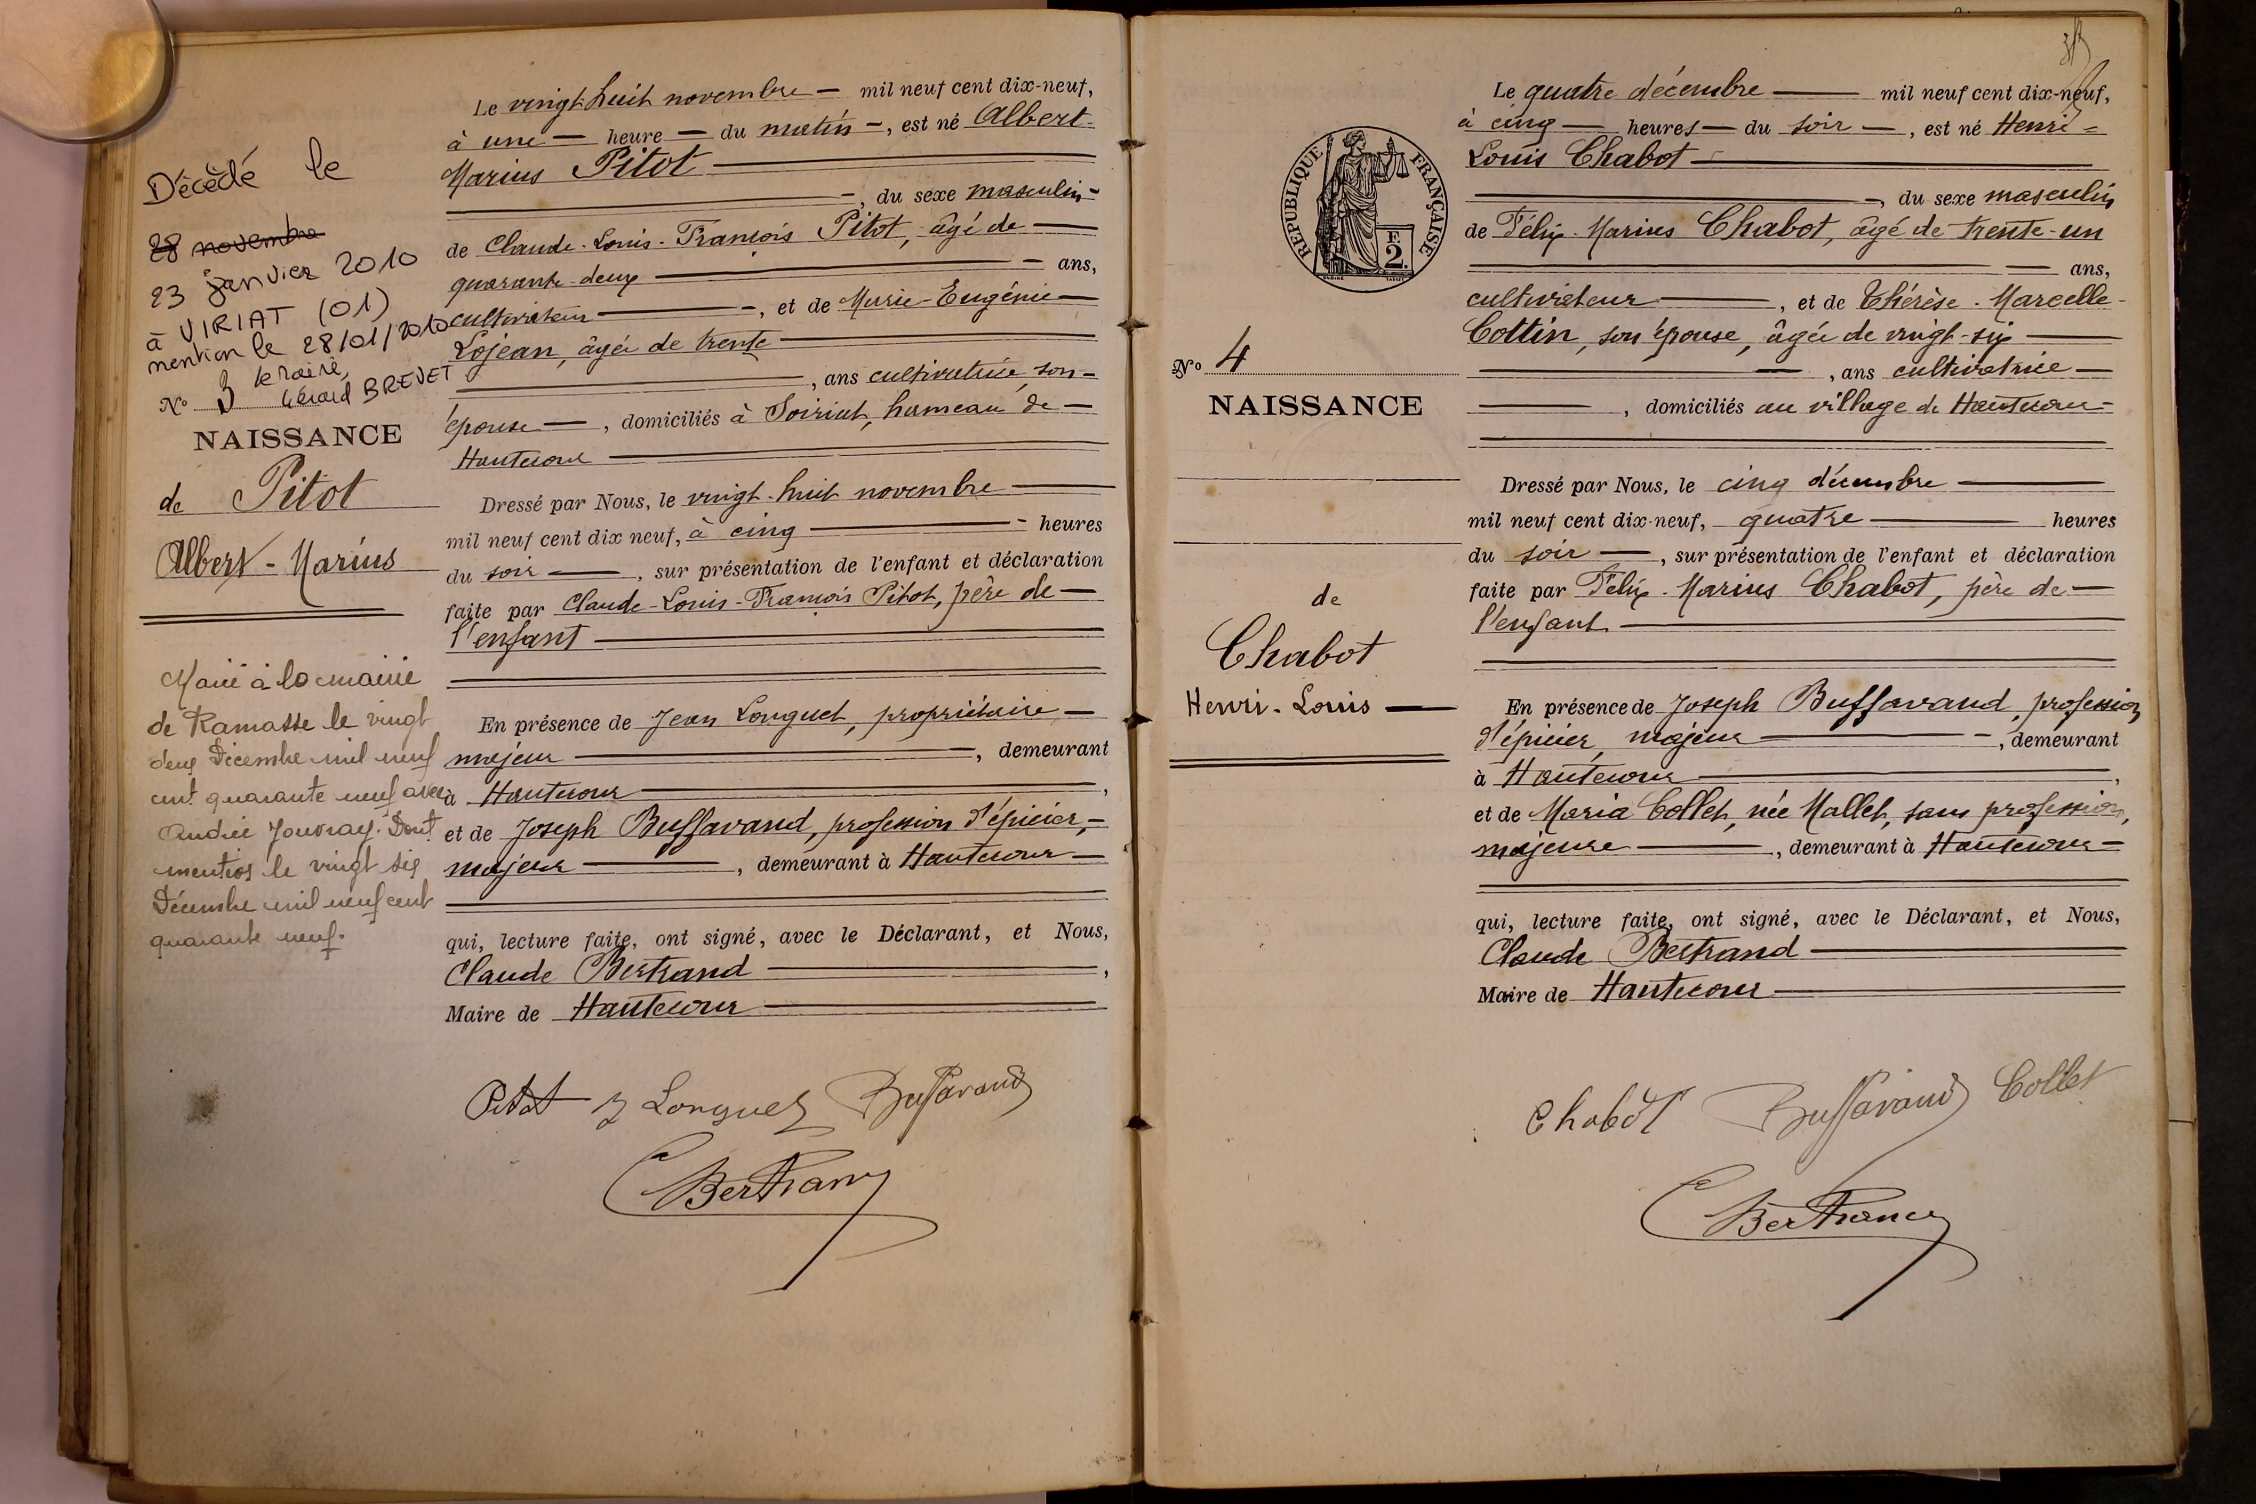 Décédé le
28 novembre
23 janvier 2010
à VIRIAT (01)
mention le 28/01/2010
le maire,
Gérard BREVET
No 3
NAISSANCE
de Pitot
Albert-Marius
Marié à la mairie
de Ramasse le vingt
deux Décembre mil neuf
cent quarante neuf avec
Andrée Jouvray. Dont
mention le vingt six
Décembre mil neuf cent
quarante neuf.
Le vingt-huit novembre — mil neuf cent dix-neuf,
à une — heure — du matin —, est né Albert-
Marius Pitot
—, du sexe masculin-
de Claude-Louis-François Pitot, âgé de —
quarante-deux — ans,
cultivateur —, et de Marie-Eugénie —
Lojean, âgée de trente —
, ans cultivatrice, son-
épouse —, domiciliés à Soiriat, hameau de —
Hautecour —
Dressé par Nous, le vingt-huit novembre —
mil neuf cent dix neuf, à cinq — heures
du soir —, sur présentation de l'enfant et déclaration
faite par Claude-Louis-François Pitot, père de —
l'enfant —
En présence de Jean Longuet, propriétaire, —
majeur —, demeurant
à Hautecour —,
et de Joseph Buffavand, profession d'épicier, —
majeur —, demeurant à Hautecour —
qui, lecture faite, ont signé, avec le Déclarant, et Nous,
Claude Bertrand —,
Maire de Hautecour —
Pitot J Longuet Buffavand
C Bertrand
RÉPUBLIQUE FRANÇAISE
F
2.
No 4
NAISSANCE
de
Chabot
Henri-Louis —
Le quatre décembre — mil neuf cent dix-neuf,
à cinq — heures — du soir —, est né Henri-
Louis Chabot —
—, du sexe masculin
de Félix-Marius Chabot, âgé de trente-un
— ans,
cultivateur —, et de Thérèse-Marcelle-
Cottin, son épouse, âgée de vingt-six —
—, ans cultivatrice —
—, domiciliés au village de Hautecour-
Dressé par Nous, le cinq décembre —
mil neuf cent dix-neuf, quatre — heures
du soir —, sur présentation de l'enfant et déclaration
faite par Félix-Marius Chabot, père de —
l'enfant —
En présence de Joseph Buffavand, profession
d'épicier, majeur —, demeurant
à Hautecour —,
et de Maria Collet, née Mallet, sans profession,
majeure —, demeurant à Hautecour —
qui, lecture faite, ont signé, avec le Déclarant, et Nous,
Claude Bertrand —
Maire de Hautecour —
Chabot Buffavand Collet
C Bertrand